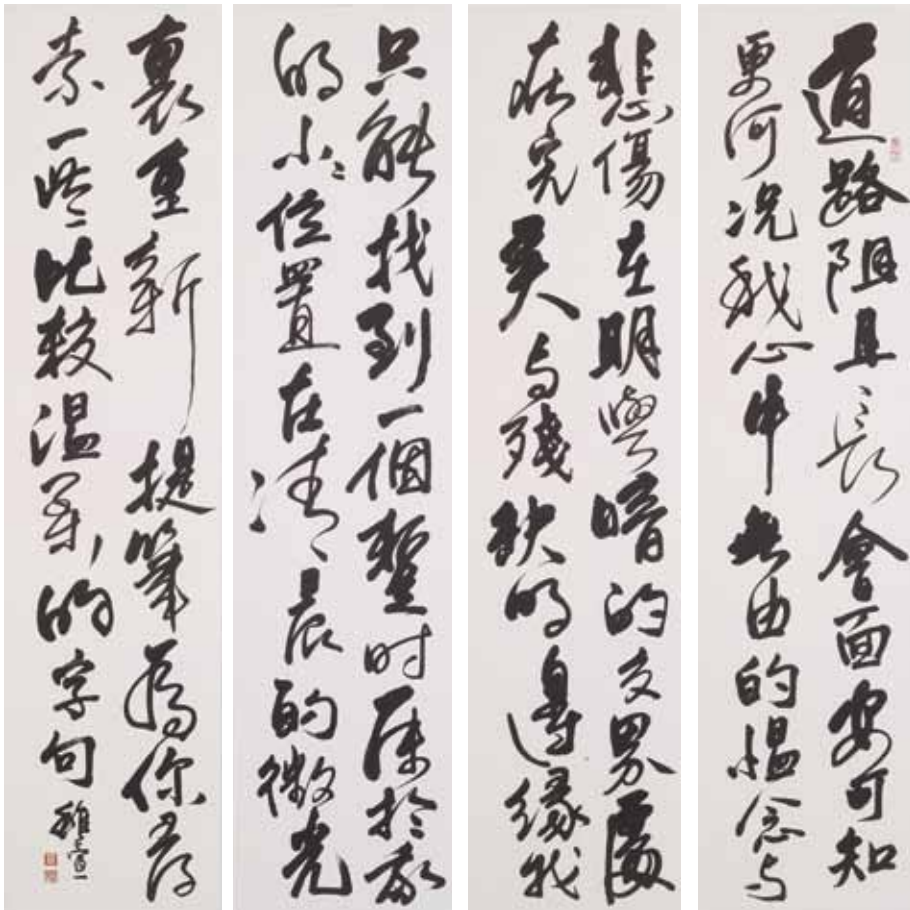 道路阻且長會面安可知
更何況我心中無由的愠念与
悲傷在明與暗的交界處
在完美与殘缺的邊緣我
只能找到一個暫时屬於我
的小小位置在清晨的微光
裏重新提筆為你尋
索一些比較溫柔的字句